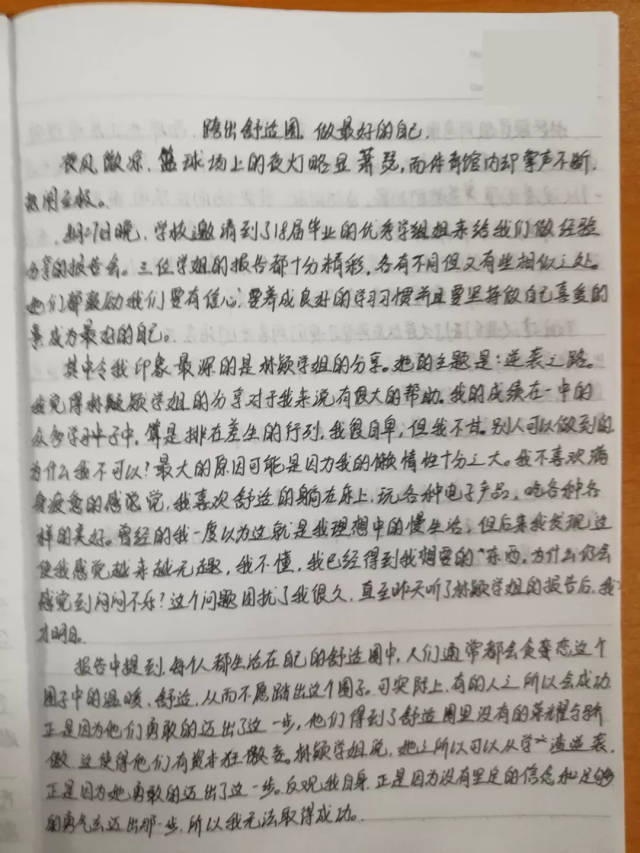 踏出舒适圈，做最好的自己。
夜风微凉，篮球场上的夜灯略显萧瑟，而体育馆内却掌声不断，
热闹至极。
日晚，学校邀请到了18届毕业的优秀学姐姐来给我们做经验
分享的报告会。三位学姐的报告都十分精彩，各有不同但又有些相似之处。
她们都激励我们要有信心，要养成良好的学习习惯并且要坚持做自己喜爱的
事成为最好的自己。
其中令我印象最深的是林颖学姐的分享。她的主题是：逆袭之路。
我觉得林颖学姐的分享对于我来说有很大的帮助。我的成绩在一中的
众多学习中子中，算是排在差生的行列，我很自卑，但我不甘。别人可以做到的，
为什么我不可以？最大的原因可能是因为我的懒惰性十分之大。我不喜欢满
身疲惫的感觉，我喜欢舒适的躺在床上，玩各种电子产品，吃各种各
样的美好。曾经的我一度以为这就是我理想中的慢生活，但后来我发现，这
使我感觉越来越无趣，我不懂，我已经得到我想要的东西，为什么仍会
感觉到闷闷不乐？这个问题困扰了我很久，直至昨天听了林颖学姐的报告后，我
才明白。
报告中提到，每个人都生活在自己的舒适圈中，人们通常都会贪恋这个
圈子中的温暖、舒适，从而不愿踏出这个圈子。可实际上，有的人之所以会成功
正是因为他们勇敢的迈出了这一步，他们得到了舒适圈里没有的荣耀与骄
傲，这使得他们有资本狂傲。林颖学姐说，她之所以可以从学渣逆袭，
正是因为她勇敢的迈出了这一步。反观我自身，正是因为没有坚定的信念和足够
的勇气去迈出那一步，所以我无法取得成功。